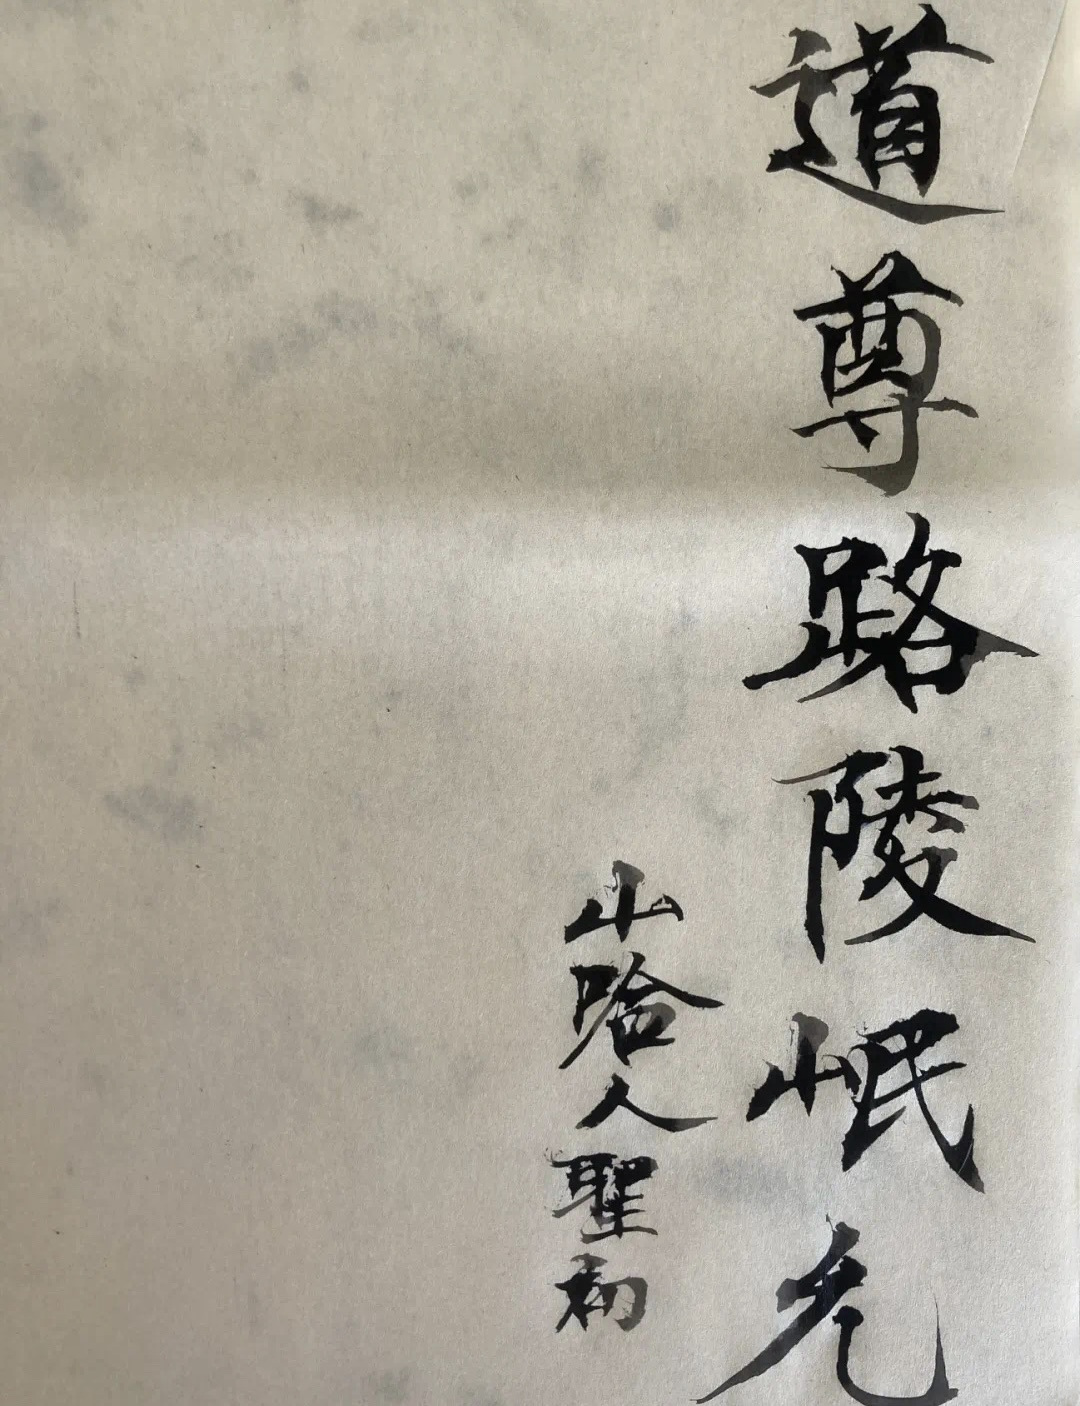 道尊路陵岷允
山哈人聖初